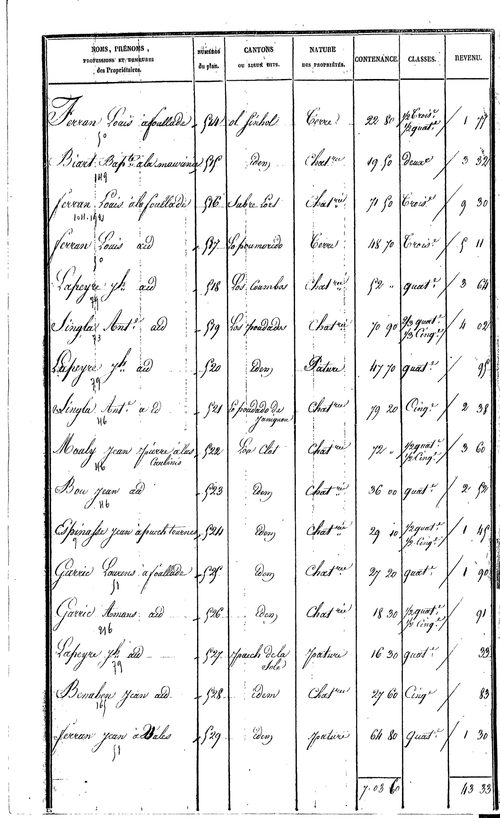 NOMS, PRÉNOMS, PROFESSIONS ET DEMEURES des Propriétaires. NUMÉROS du plan. CANTONS OU LIEUX DITS. NATURE DES PROPRIÉTÉS. CONTENANCE. CLASSES. REVENU.
Ferran Louis à foullade 514 al Terre 22 80 1/2 Trois.e 1/2 quat.e 1 77
50
Biart Bap.te à la 515 idem Chat.rie 19 50 deux.e 3 32
149
Ferran Louis à la foullade 516 Chat.rie 71 50 Trois.e 9 30
Ferran Louis aud 517 Terre 48 70 Trois.e 5 11
50
Lapeyre J.h aud 518 Los Coumbos Chat.rie 52 " quat.e 3 64
79
Singla Ant.e aud 519 Chat.rie 70 90 1/2 quat.e 1/2 Cinq.e 4 02
73
Lapeyre J.h aud 520 idem Pature 47 70 quat.e 95
79
Singla Ant.e a id 521 Chat.rie 79 20 Cinq.e 2 38
116
Mouly Jean pierre 522 Lou Clot Chat.rie 72 " 1/2 quat.e 1/2 Cinq.e 3 60
116
Bou Jean aud 523 idem Chat.rie 36 00 quat.e 2 52
116
Espinasse Jean à puech 524 idem Chat.rie 29 10 1/2 quat.e 1/2 Cinq.e 1 45
9
Garric Laurens à foullade 525 idem Chat.rie 27 20 quat.e 1 90
51
Garric Amans aud 526 idem Chat.rie 18 30 1/2 quat.e 1/2 Cinq.e 91
Lapeyre J.h aud 527 puech de la pature 16 30 quat.e 33
79
Jean aud 528 idem Chat.rie 27 60 Cinq.e 83
165
Ferran Jean à 529 idem pature 64 80 quat.e 1 30
51
7.03 60 43 33